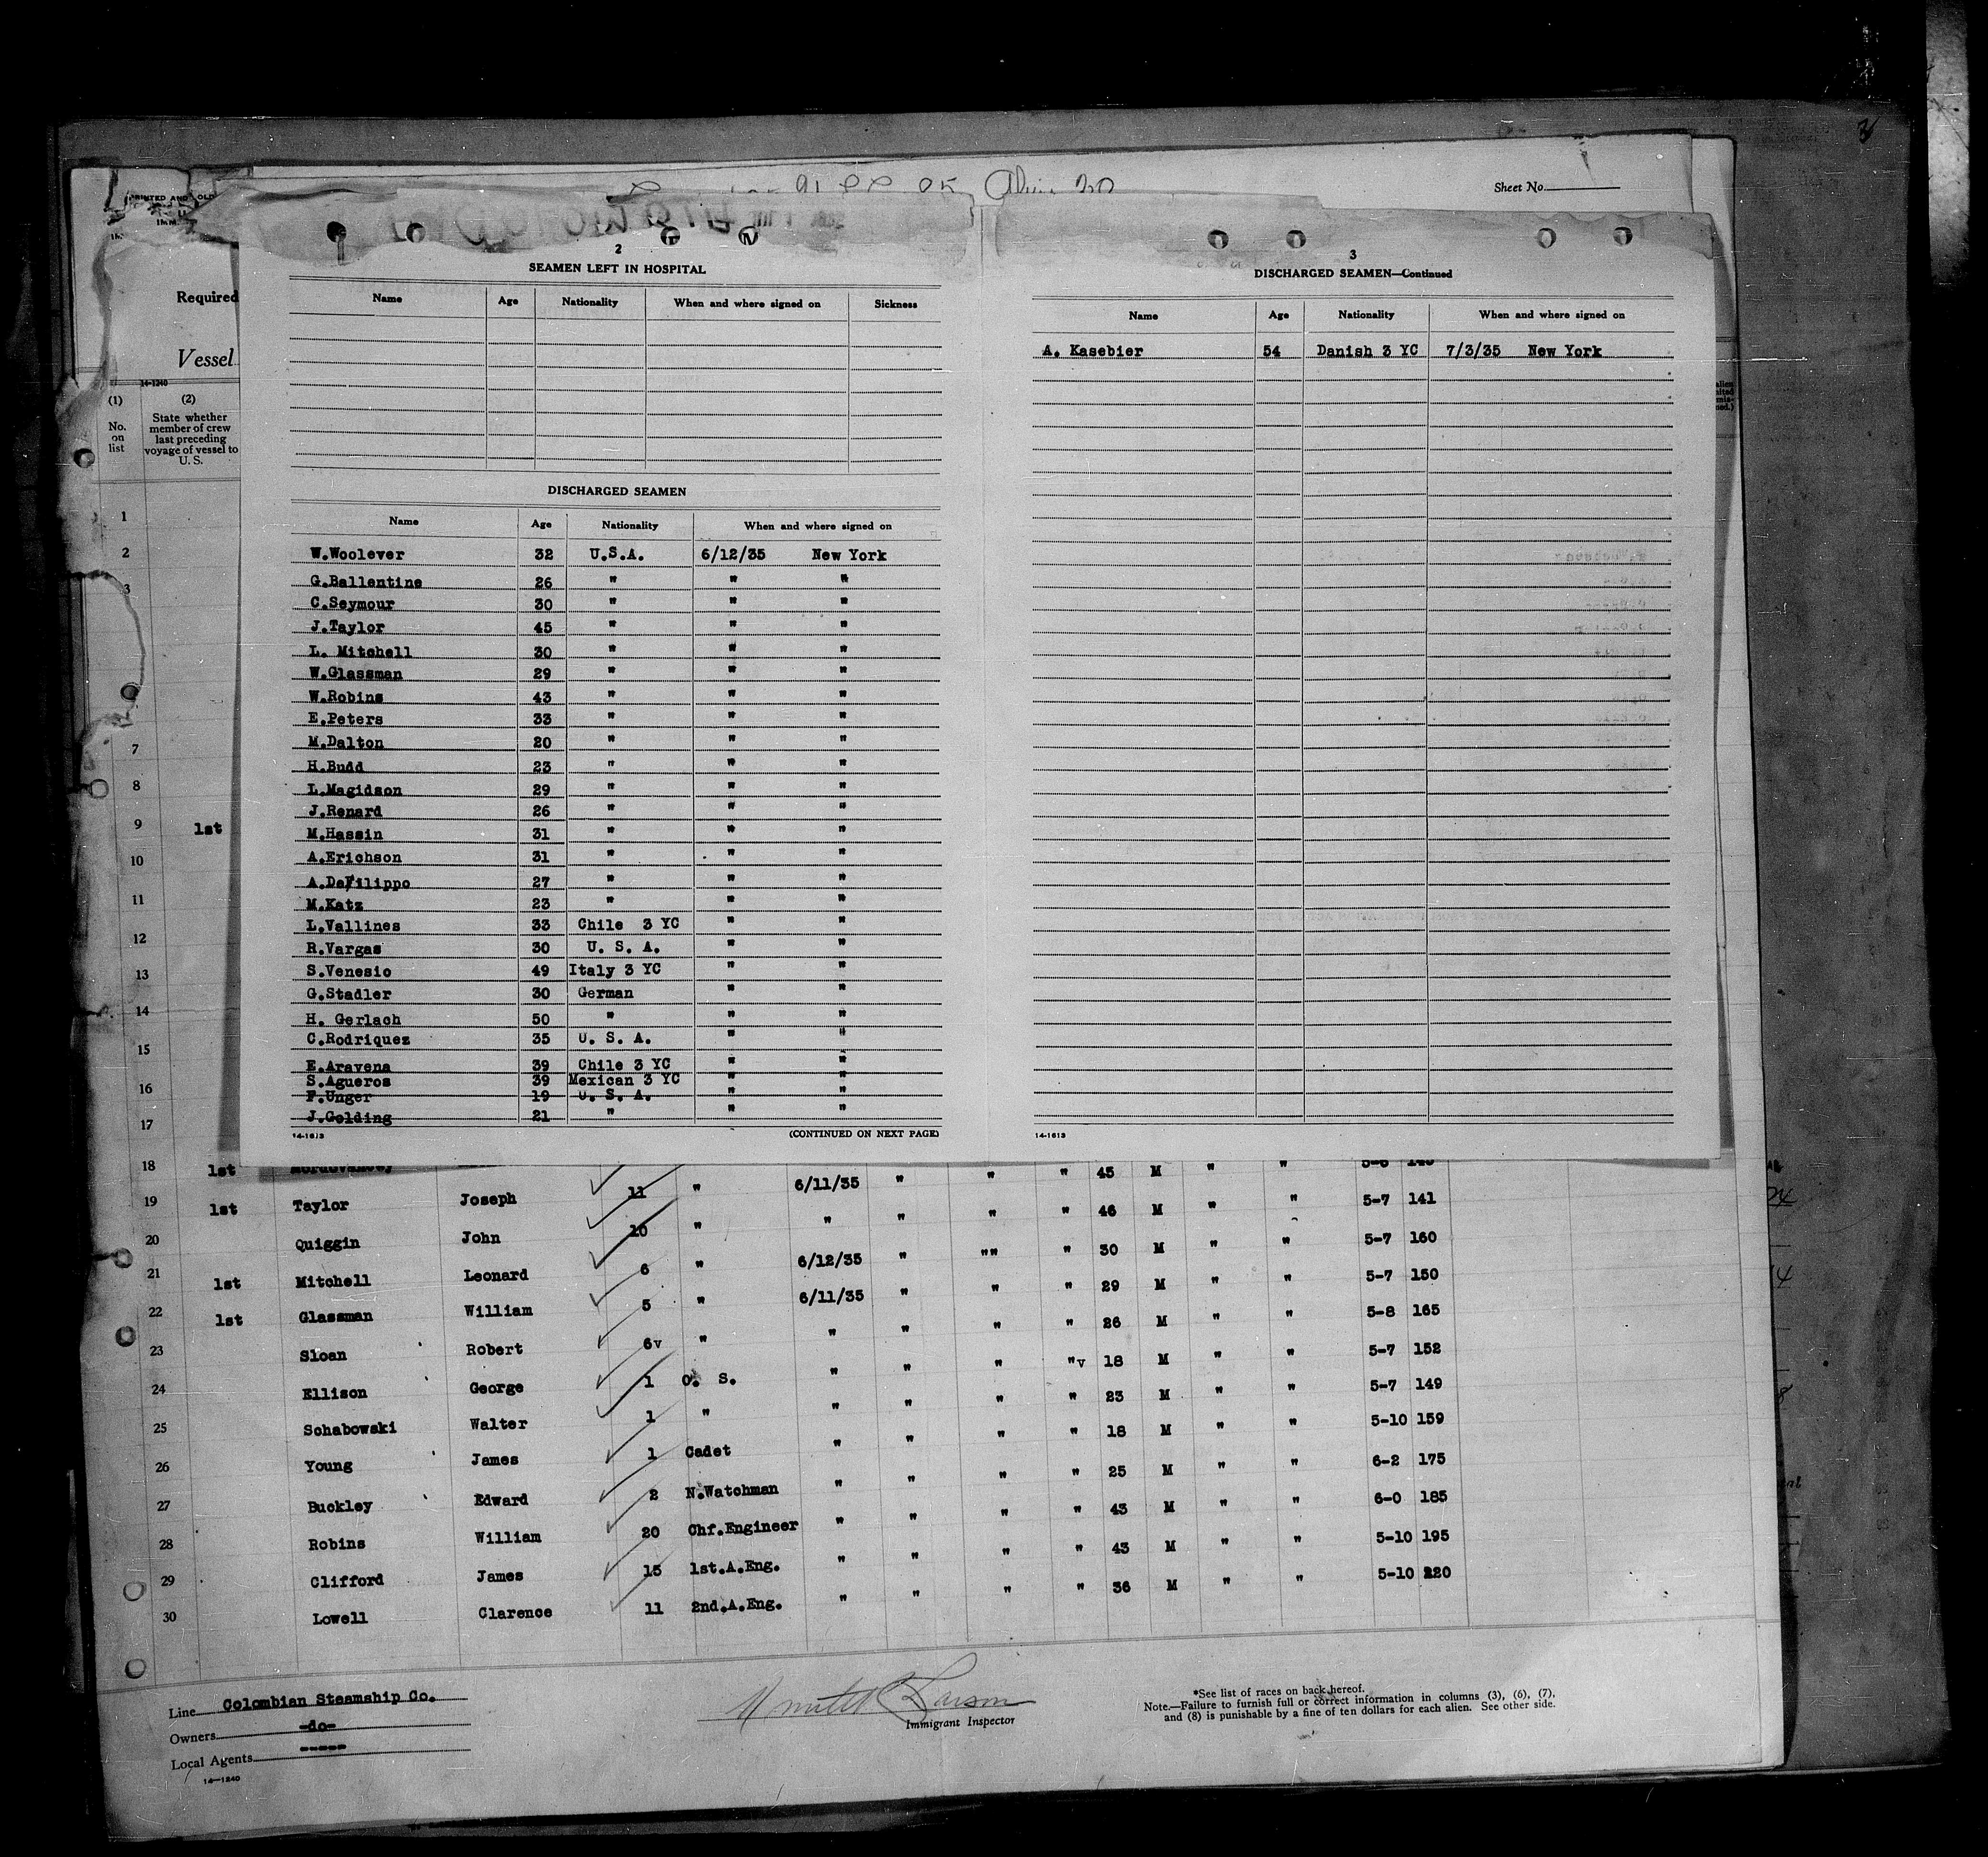 Sheet No.
PRINTED AND
Required
Vessel
14-1240
(1) (2)
No. on list
State whether member of crew last preceding voyage of vessel to U. S.
2
SEAMEN LEFT IN HOSPITAL
Name Age Nationality When and where signed on Sickness
DISCHARGED SEAMEN
Name Age Nationality When and where signed on
W.Woolever 32 U.S.A. 6/12/35 New York
G.Ballentine 26 " " "
C.Seymour 30 " " "
J.Taylor 45 " " "
L. Mitchell 30 " " "
W.Glassman 29 " " "
W.Robins 43 " " "
E.Peters 33 " " "
M.Dalton 20 " " "
H.Budd 23 " " "
L.Magidson 29 " " "
J.Renard 26 " " "
M.Hassin 31 " " "
A.Erichson 31 " " "
A.DeFilippo 27 " " "
M.Katz 23 " " "
L.Vallines 33 Chile 3 YC " "
R.Vargas 30 U. S. A. " "
S.Venesio 49 Italy 3 YC " "
G.Stadler 30 German " "
H. Gerlach 50 " " "
C.Rodriquez 35 U. S. A. " "
E.Aravena 39 Chile 3 YC " "
S.Agueros 39 Mexican 3 YC " "
F.Unger 19 U. S. A. " "
J.Golding 21 " " "
14-1613 (CONTINUED ON NEXT PAGE)
3
DISCHARGED SEAMEN—Continued
Name Age Nationality When and where signed on
A. Kasebier 54 Danish 3 YC 7/3/35 New York
14-1613
1
2
3
7
8
9 1st
10
11
12
13
14
15
16
17
18 1st " " " 45 M " "
19 1st Taylor Joseph 11 " 6/11/35 " " " 46 M " " 5-7 141
20 Quiggin John 10 " " " " " 30 M " " 5-7 160
21 1st Mitchell Leonard 6 " 6/12/35 " "" " 29 M " " 5-7 150
22 1st Glassman William 5 " 6/11/35 " " " 26 M " " 5-8 165
23 Sloan Robert 6v " " " " "v 18 M " " 5-7 152
24 Ellison George 1 O. S. " " " " 23 M " " 5-7 149
25 Schabowski Walter 1 " " " " " 18 M " " 5-10 159
26 Young James 1 Cadet " " " " 25 M " " 6-2 175
27 Buckley Edward 2 N.Watchman " " " " 43 M " " 6-0 185
28 Robins William 20 Chf.Engineer " " " " 43 M " " 5-10 195
29 Clifford James 15 1st.A.Eng. " " " " 36 M " " 5-10 220
30 Lowell Clarence 11 2nd.A.Eng. " "
Line Colombian Steamship Co.
Owners -do-
Local Agents -----
14—1240
Larson
Immigrant Inspector
*See list of races on back hereof.
Note.—Failure to furnish full or correct information in columns (3), (6), (7),
and (8) is punishable by a fine of ten dollars for each alien. See other side.